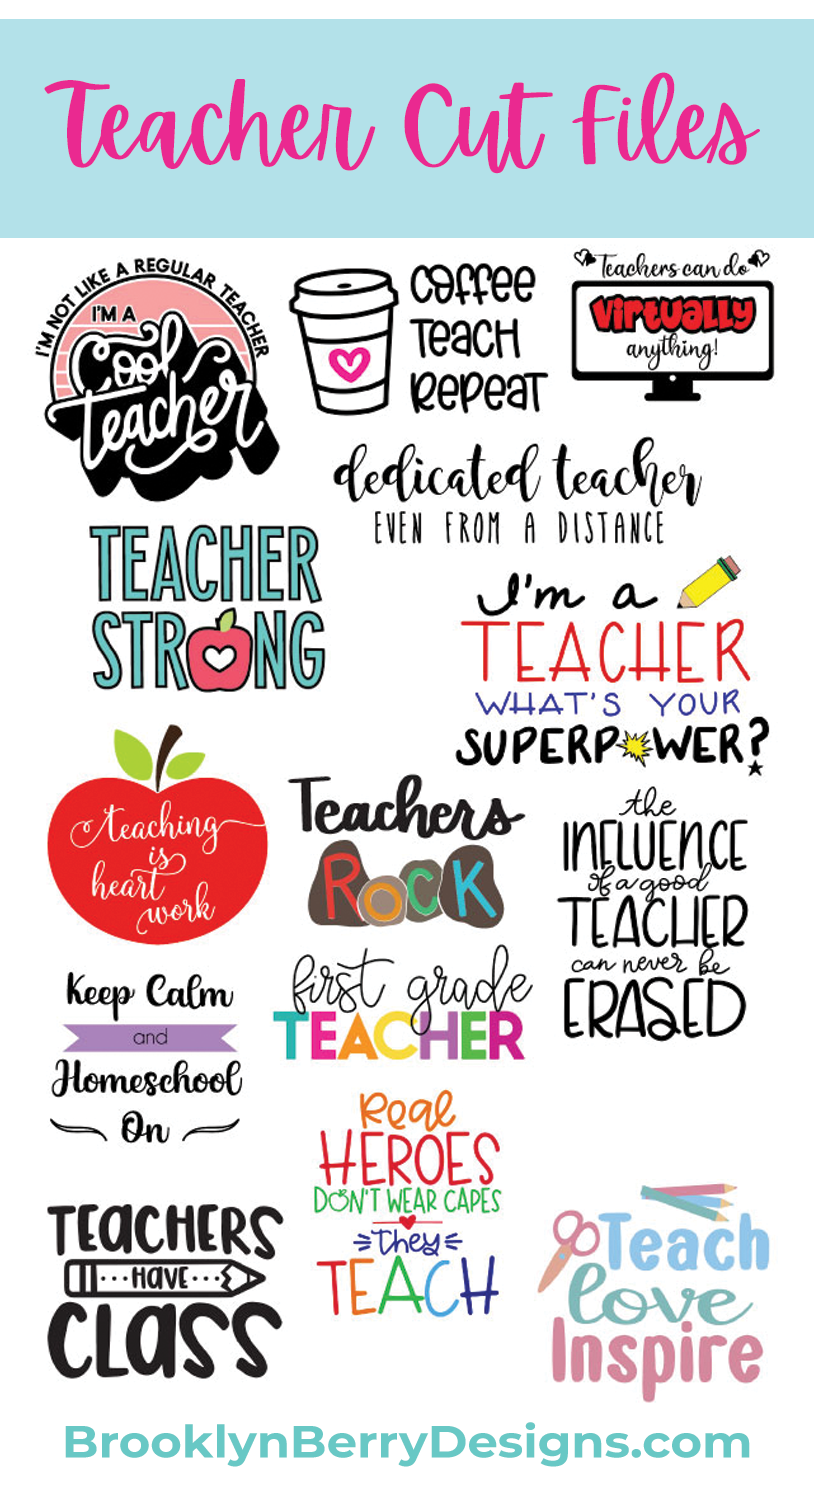 Teacher Cut Files
I'M NOT LIKE A REGULAR TEACHER
I'M A
Cool
Teacher
COFFEE
TEACH
REPEAT
Teachers can do
VIRTUALLY
anything!
dedicated teacher
EVEN FROM A DISTANCE
TEACHER
STRONG
I'm a
TEACHER
WHAT'S YOUR
SUPERPOWER?
teaching
is
heart
work
Teachers
ROCK
the
INFLUENCE
of a good
TEACHER
can never be
ERASED
Keep Calm
and
Homeschool
On
first grade
TEACHER
Real
HEROES
DON'T WEAR CAPES
they
TEACH
TEACHERS
HAVE
CLASS
Teach
love
Inspire
BrooklynBerryDesigns.com